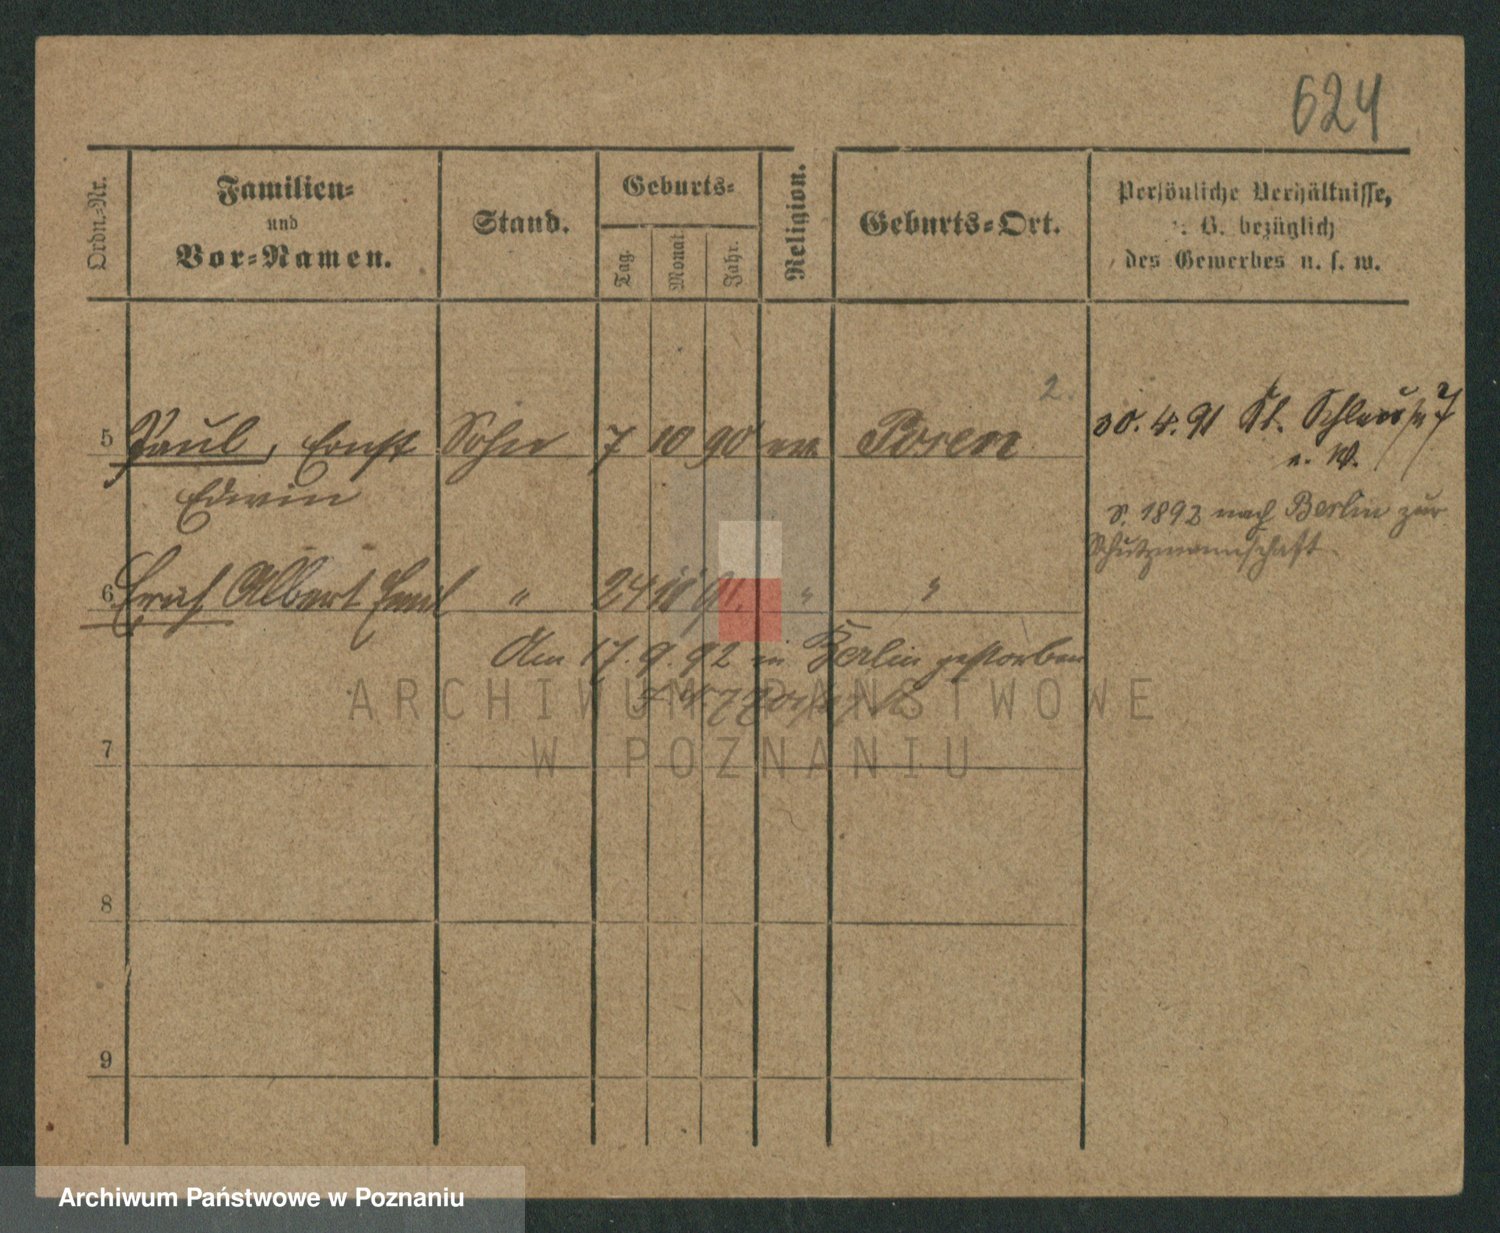 624
Ordn.-Nr.
Familien-
und
Vor-Namen.
Stand.
Geburts-
Tag.
Monat
Jahr.
Religion.
Geburts-Ort.
Persönliche Verhältnisse,
z. B. bezüglich
des Gewerbes u. s. w.
2.
5 Paul, Ernst Sohn 7 10 90 ev. Posen
Edwin
30. 4. 91 Kl.
n. W.
S. 1892 nach Berlin zur
Schutzmannschaft
6 Erich Albert Emil " 24 10 91. " "
Am 17. 9. 92 in Berlin gestorben
7
8
9
ARCHIWUM PAŃSTWOWE
W POZNANIU
Archiwum Państwowe w Poznaniu